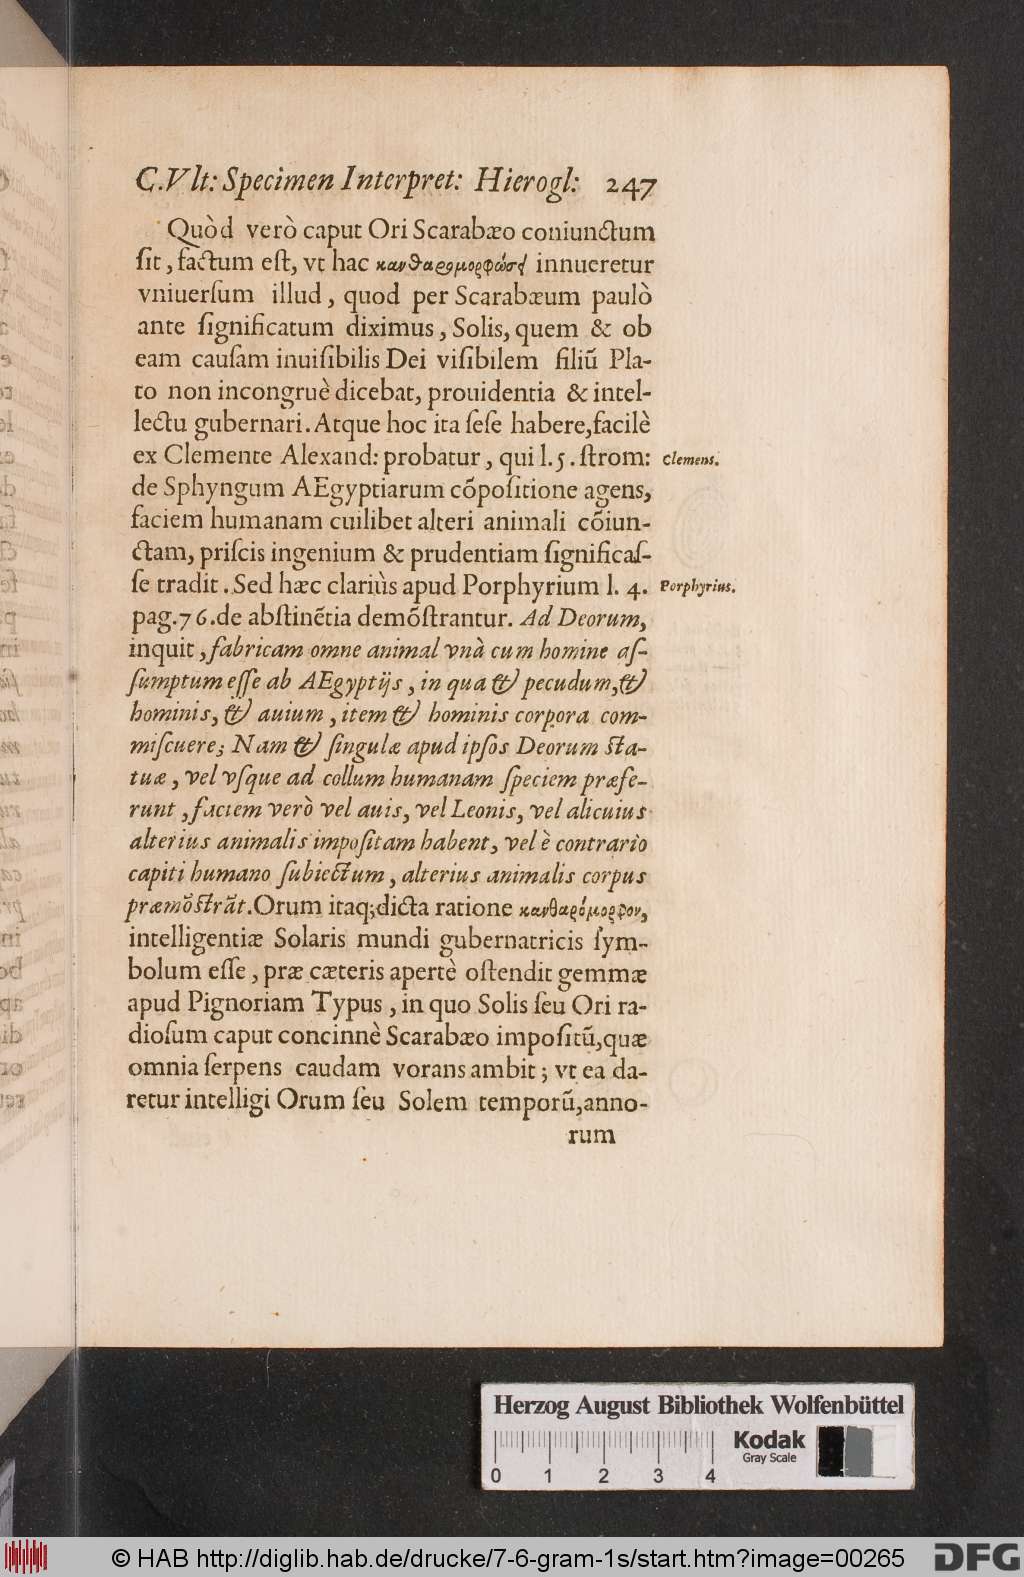 C.Vlt: Specimen Interpret: Hierogl: 247
Quòd verò caput Ori Scarabæo coniunctum
ſit, factum eſt, vt hac κανθαρομορφώσει innueretur
vniuerſum illud, quod per Scarabæum paulò
ante ſignificatum diximus, Solis, quem & ob
eam cauſam inuiſibilis Dei viſibilem filiũ Pla-
to non incongruè dicebat, prouidentia & intel-
lectu gubernari. Atque hoc ita ſeſe habere, facilè
ex Clemente Alexand: probatur, qui l. 5. ſtrom: Clemens.
de Sphyngum AEgyptiarum cõpoſitione agens,
faciem humanam cuilibet alteri animali cõiun-
ctam, priſcis ingenium & prudentiam ſignificaſ-
ſe tradit. Sed hæc clariùs apud Porphyrium l. 4. Porphyrius.
pag. 76. de abſtinẽtia demõſtrantur. Ad Deorum,
inquit, fabricam omne animal vnà cum homine aſ-
ſumptum eſſe ab AEgyptijs, in qua & pecudum, &
hominis, & auium, item & hominis corpora com-
miſcuere; Nam & ſingulæ apud ipſos Deorum ſta-
tuæ, vel vſque ad collum humanam ſpeciem præfe-
runt, faciem verò vel auis, vel Leonis, vel alicuius
alterius animalis impoſitam habent, vel è contrario
capiti humano ſubiectum, alterius animalis corpus
præmõſtrãt. Orum itaq; dicta ratione κανθαρόμορφον,
intelligentiæ Solaris mundi gubernatricis ſym-
bolum eſſe, præ cæteris apertè oſtendit gemmæ
apud Pignoriam Typus, in quo Solis ſeu Ori ra-
dioſum caput concinnè Scarabæo impoſitũ, quæ
omnia ſerpens caudam vorans ambit; vt ea da-
retur intelligi Orum ſeu Solem temporũ, anno-
rum
Herzog August Bibliothek Wolfenbüttel
Kodak
Gray Scale
0 1 2 3 4
© HAB http://diglib.hab.de/drucke/7-6-gram-1s/start.htm?image=00265
DFG